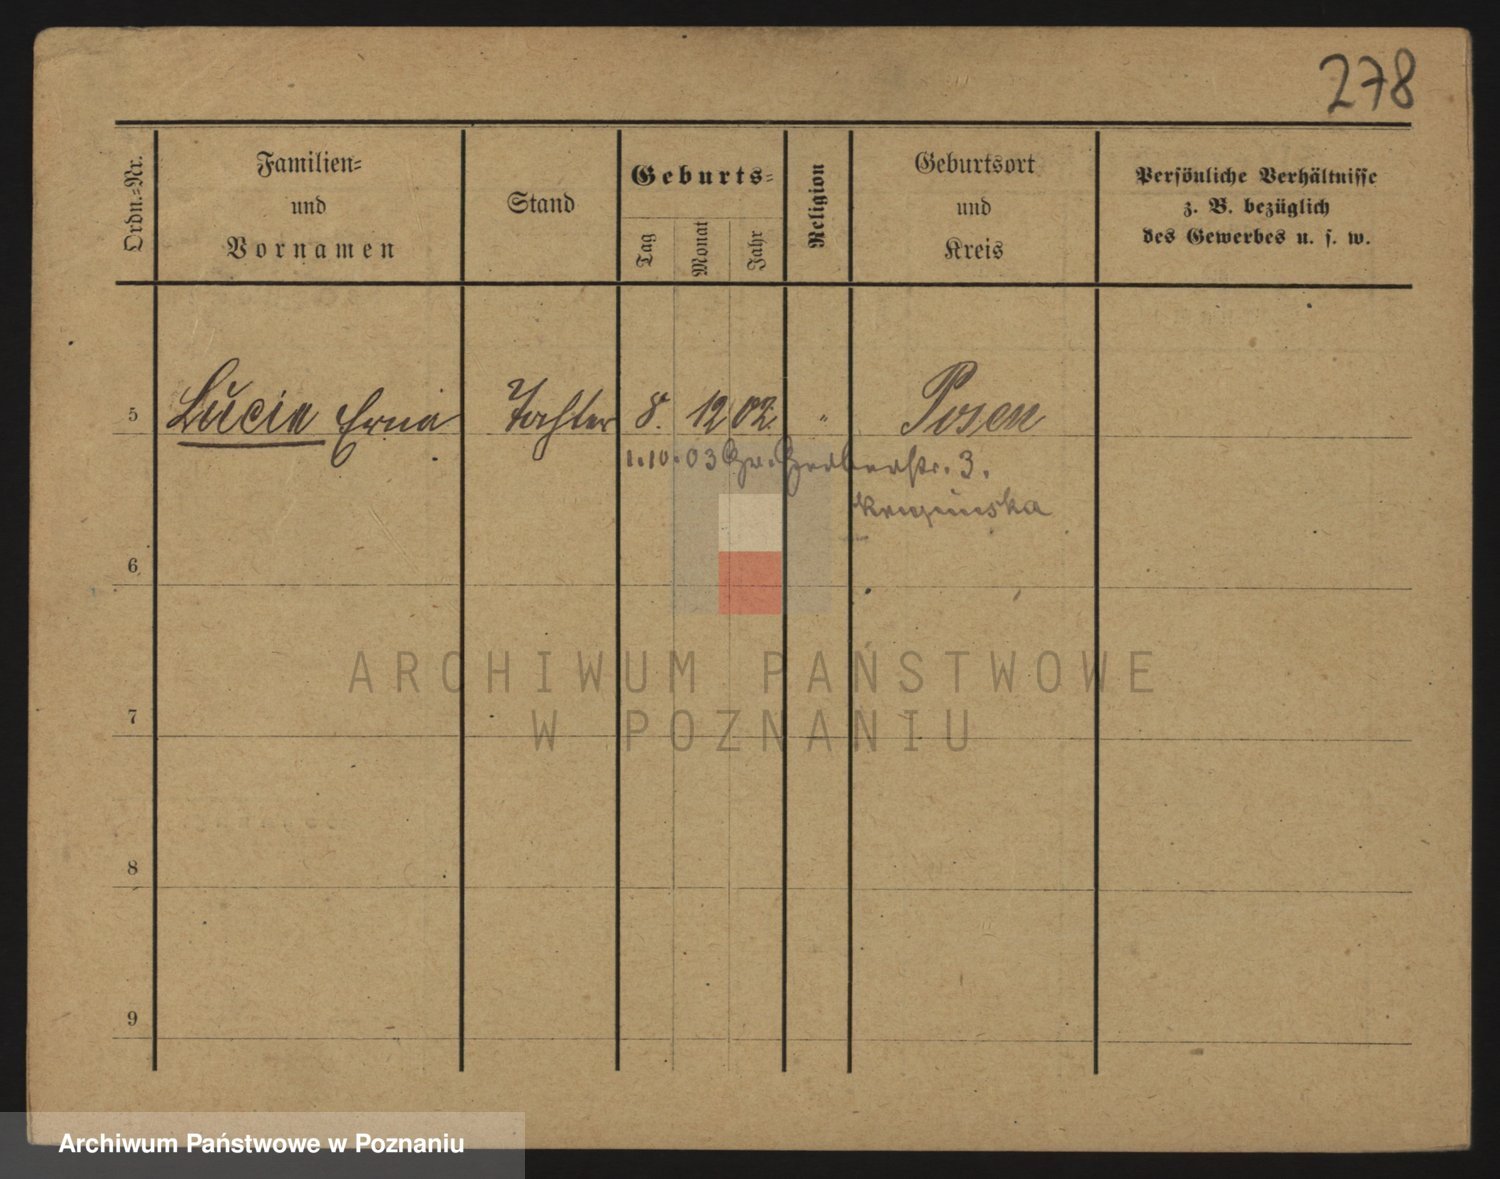 278
Ordn.-Nr.
Familien-
und
Vornamen
Stand
Geburts-
Tag
Monat
Jahr
Religion
Geburtsort
und
Kreis
Persönliche Verhältnisse
z. B. bezüglich
des Gewerbes u. s. w.
5 Lucia Erna Tochter 8. 12 02 " Posen
1.10.03 Gr. Gerberstr. 3.
6
ARCHIWUM PAŃSTWOWE
7
W POZNANIU
8
9
Archiwum Państwowe w Poznaniu